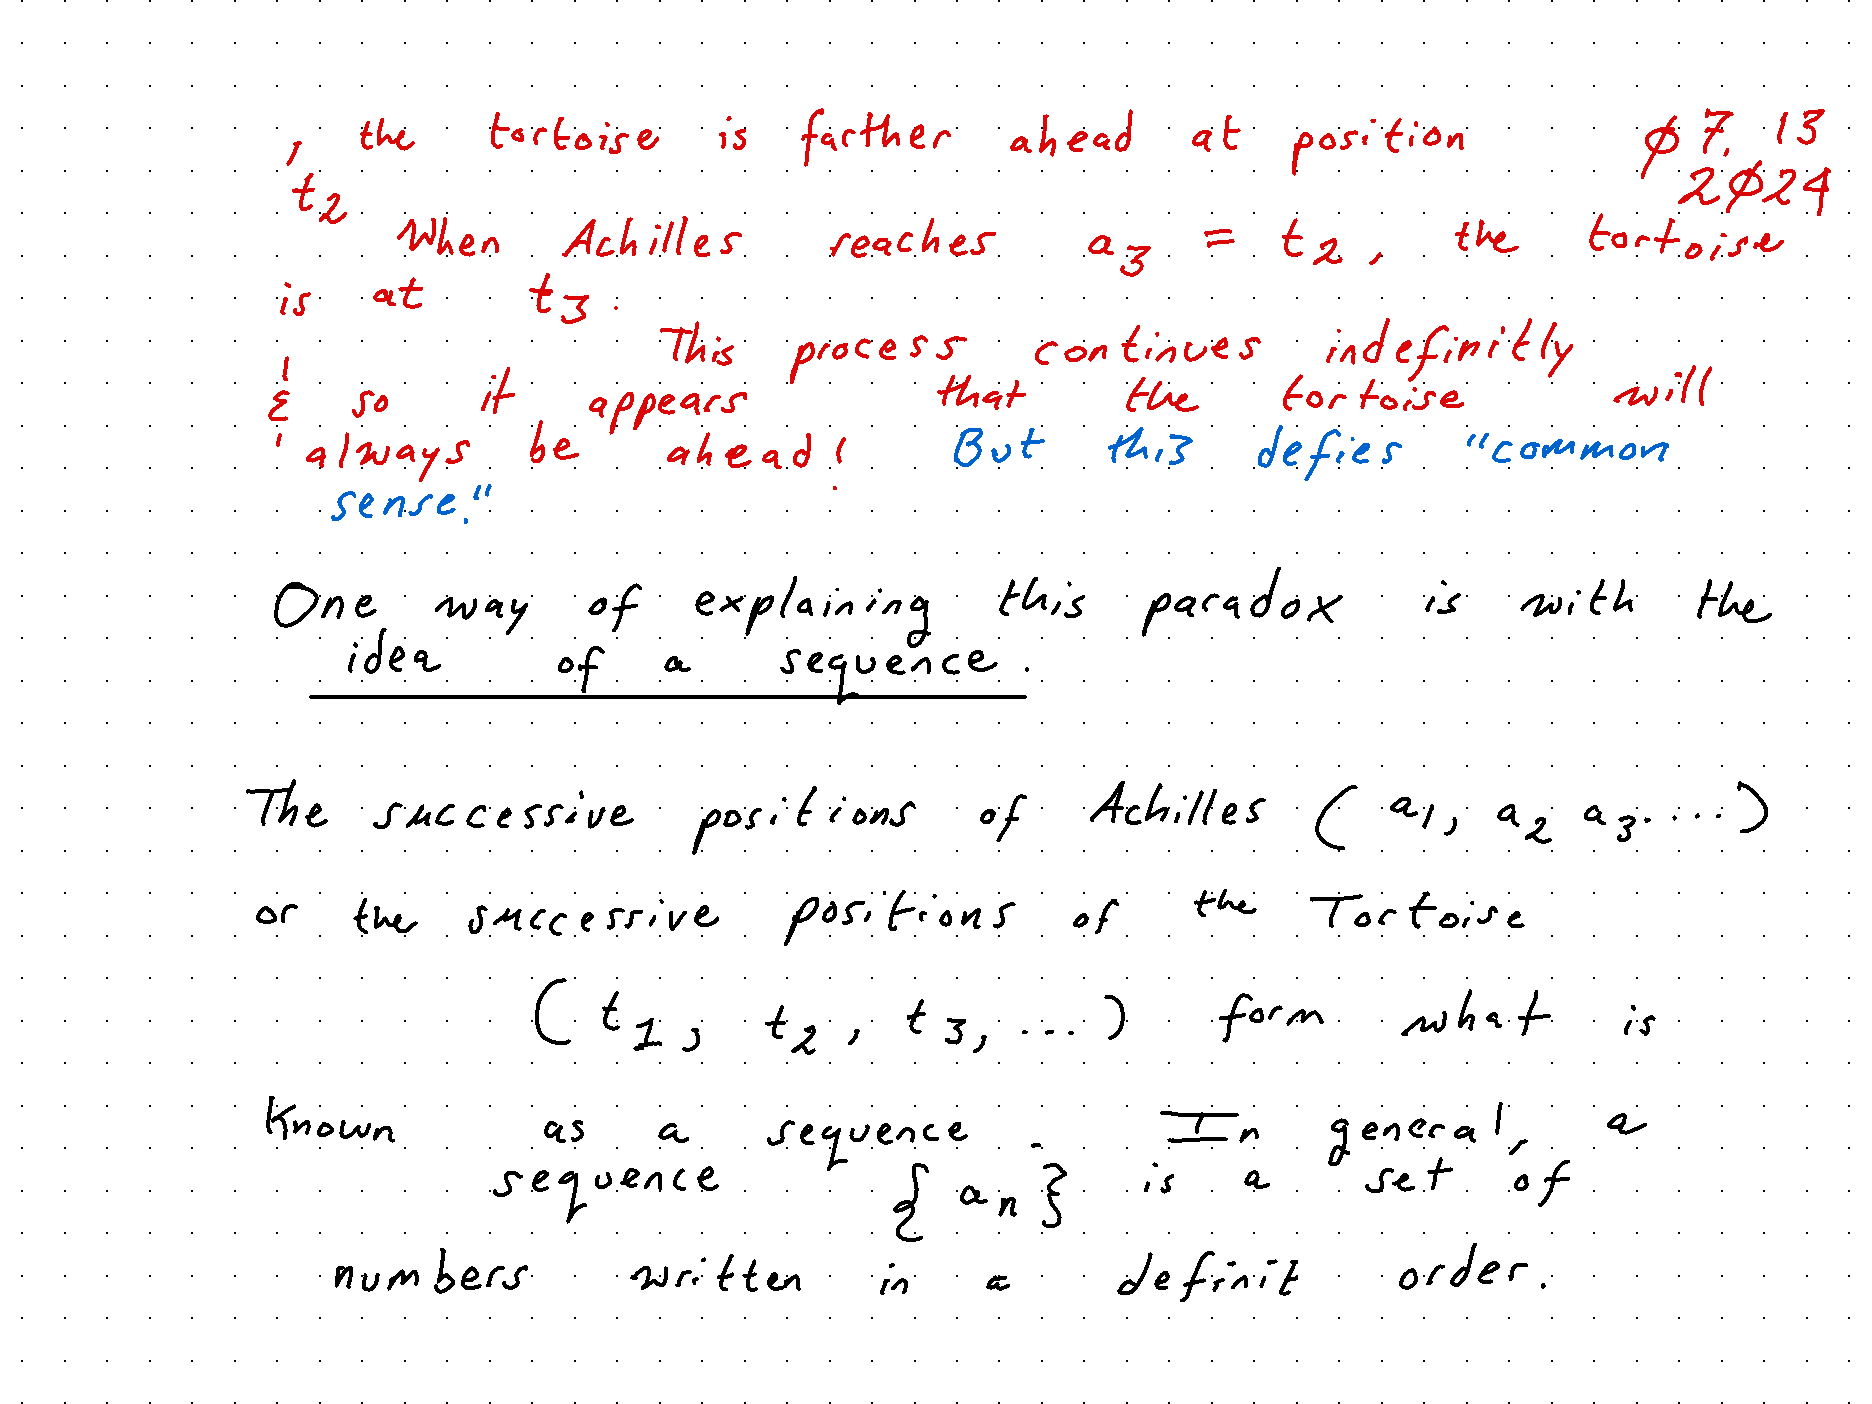 , the tortoise is farther ahead at position
ø7. 13
2ø24
t2
When Achilles reaches a3 = t2, the tortoise
is at t3.
This process continues indefinitly
& so it appears that the tortoise will
always be ahead! But this defies "common
sense."
One way of explaining this paradox is with the
idea of a sequence.
The successive positions of Achilles (a1, a2 a3....)
or the successive positions of the Tortoise
(t1, t2, t3, ...) form what is
Known as a sequence. In general, a
sequence {an} is a set of
numbers written in a definit order.